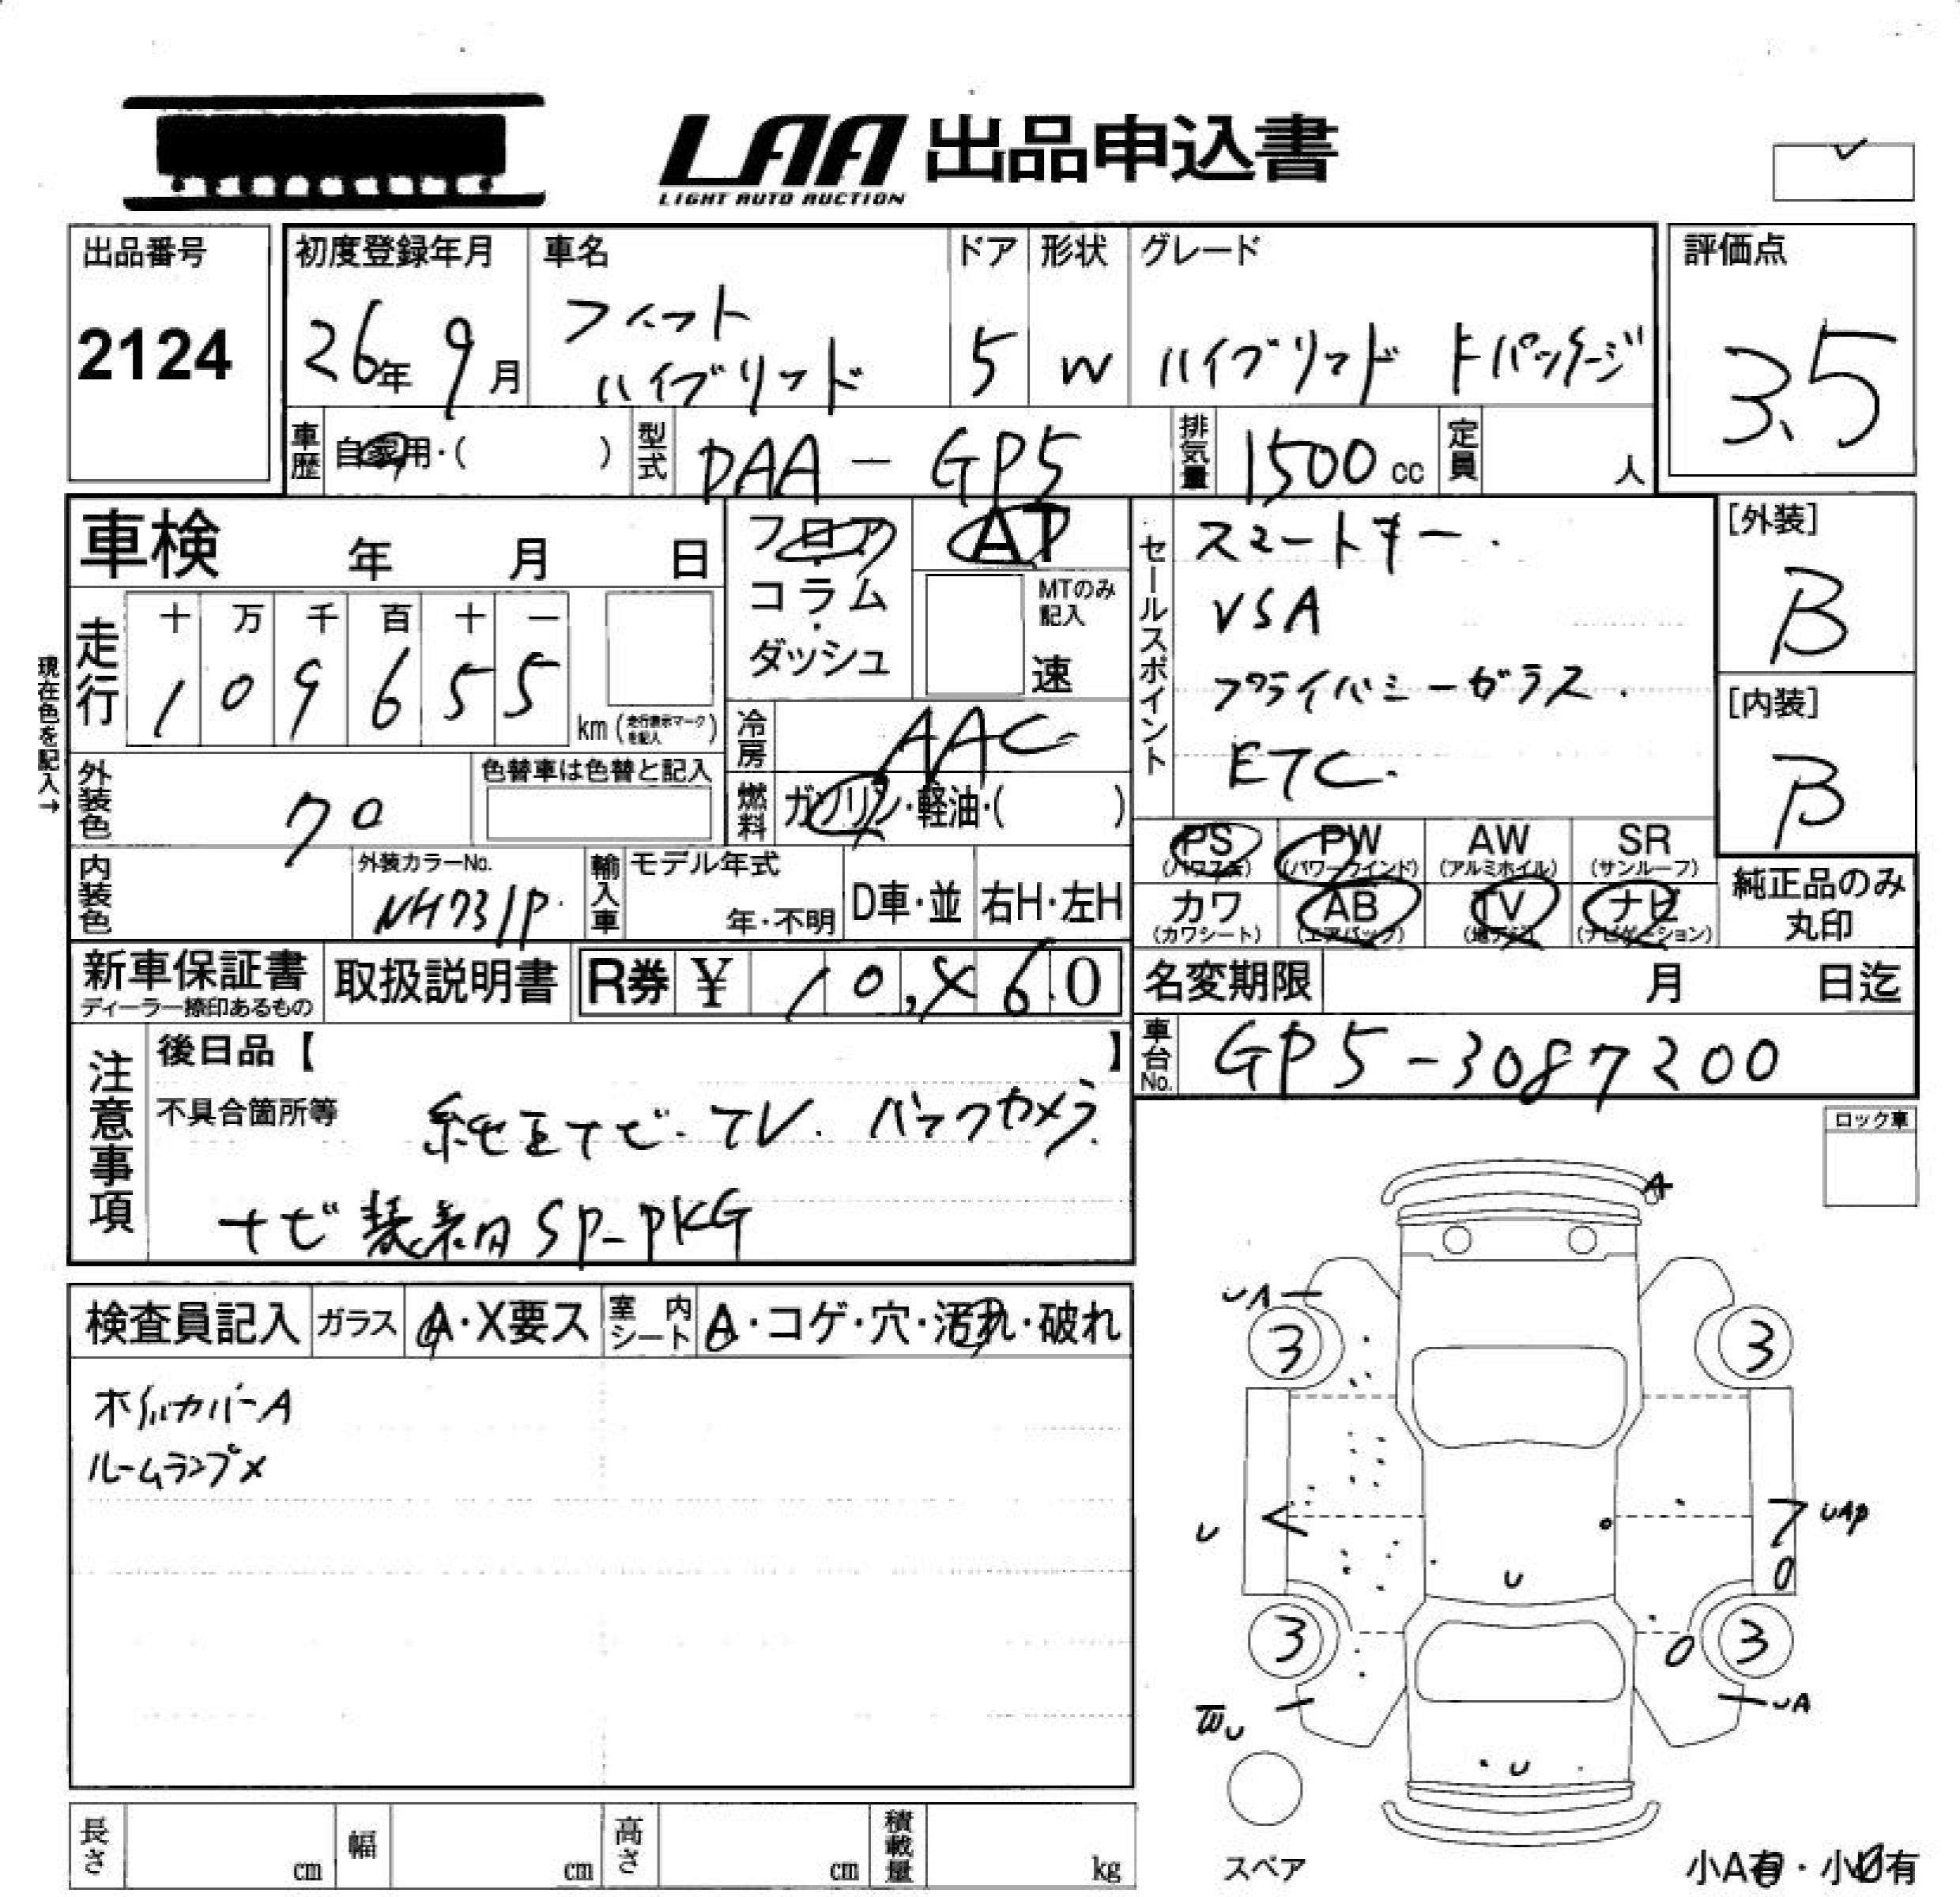 LAA 出品申込書
LIGHT AUTO AUCTION
出品番号
2124
初度登録年月
26年 9月
車名
フィット
ハイブリッド
ドア
5
形状
W
グレード
ハイブリッド Fパッケージ
評価点
3.5
車歴 自家用・( )
型式 DAA-GP5
排気量 1500 cc
定員 人
車検 年 月 日
フロア・コラム・ダッシュ
AT
MTのみ記入
速
セールスポイント
スマートキー.
VSA
プライバシーガラス.
ETC.
[外装]
B
[内装]
B
現在色を記入→
走行
十 万 千 百 十 一
1 0 9 6 5 5
km (走行表示マークを記入)
冷房 AAC
燃料 ガソリン・軽油・( )
外装色 クロ
色替車は色替と記入
内装色
外装カラーNo.
NH731P.
輸入車
モデル年式
年・不明
D車・並
右H・左H
PS (パワステ)
PW (パワーウインド)
AW (アルミホイル)
SR (サンルーフ)
カワ (カワシート)
AB (エアバック)
TV (地デジ)
ナビ (ナビゲーション)
純正品のみ
丸印
新車保証書
ディーラー捺印あるもの
取扱説明書
R券 ¥ 10,X60
名変期限 月 日迄
車台No. GP5-3087200
注意事項
後日品【 】
不具合箇所等
純正ナビ. TV. バックカメラ.
ナビ装着用SP-PKG
ロック車
検査員記入
ガラス A・X要ス
室内シート A・コゲ・穴・汚れ・破れ
ホイルカバーA
ルームランプX
A
UA
3
3
U
UAP
U
3
3
UA
U
スペア
小A有・小U有
長さ cm
幅 cm
高さ cm
積載量 kg